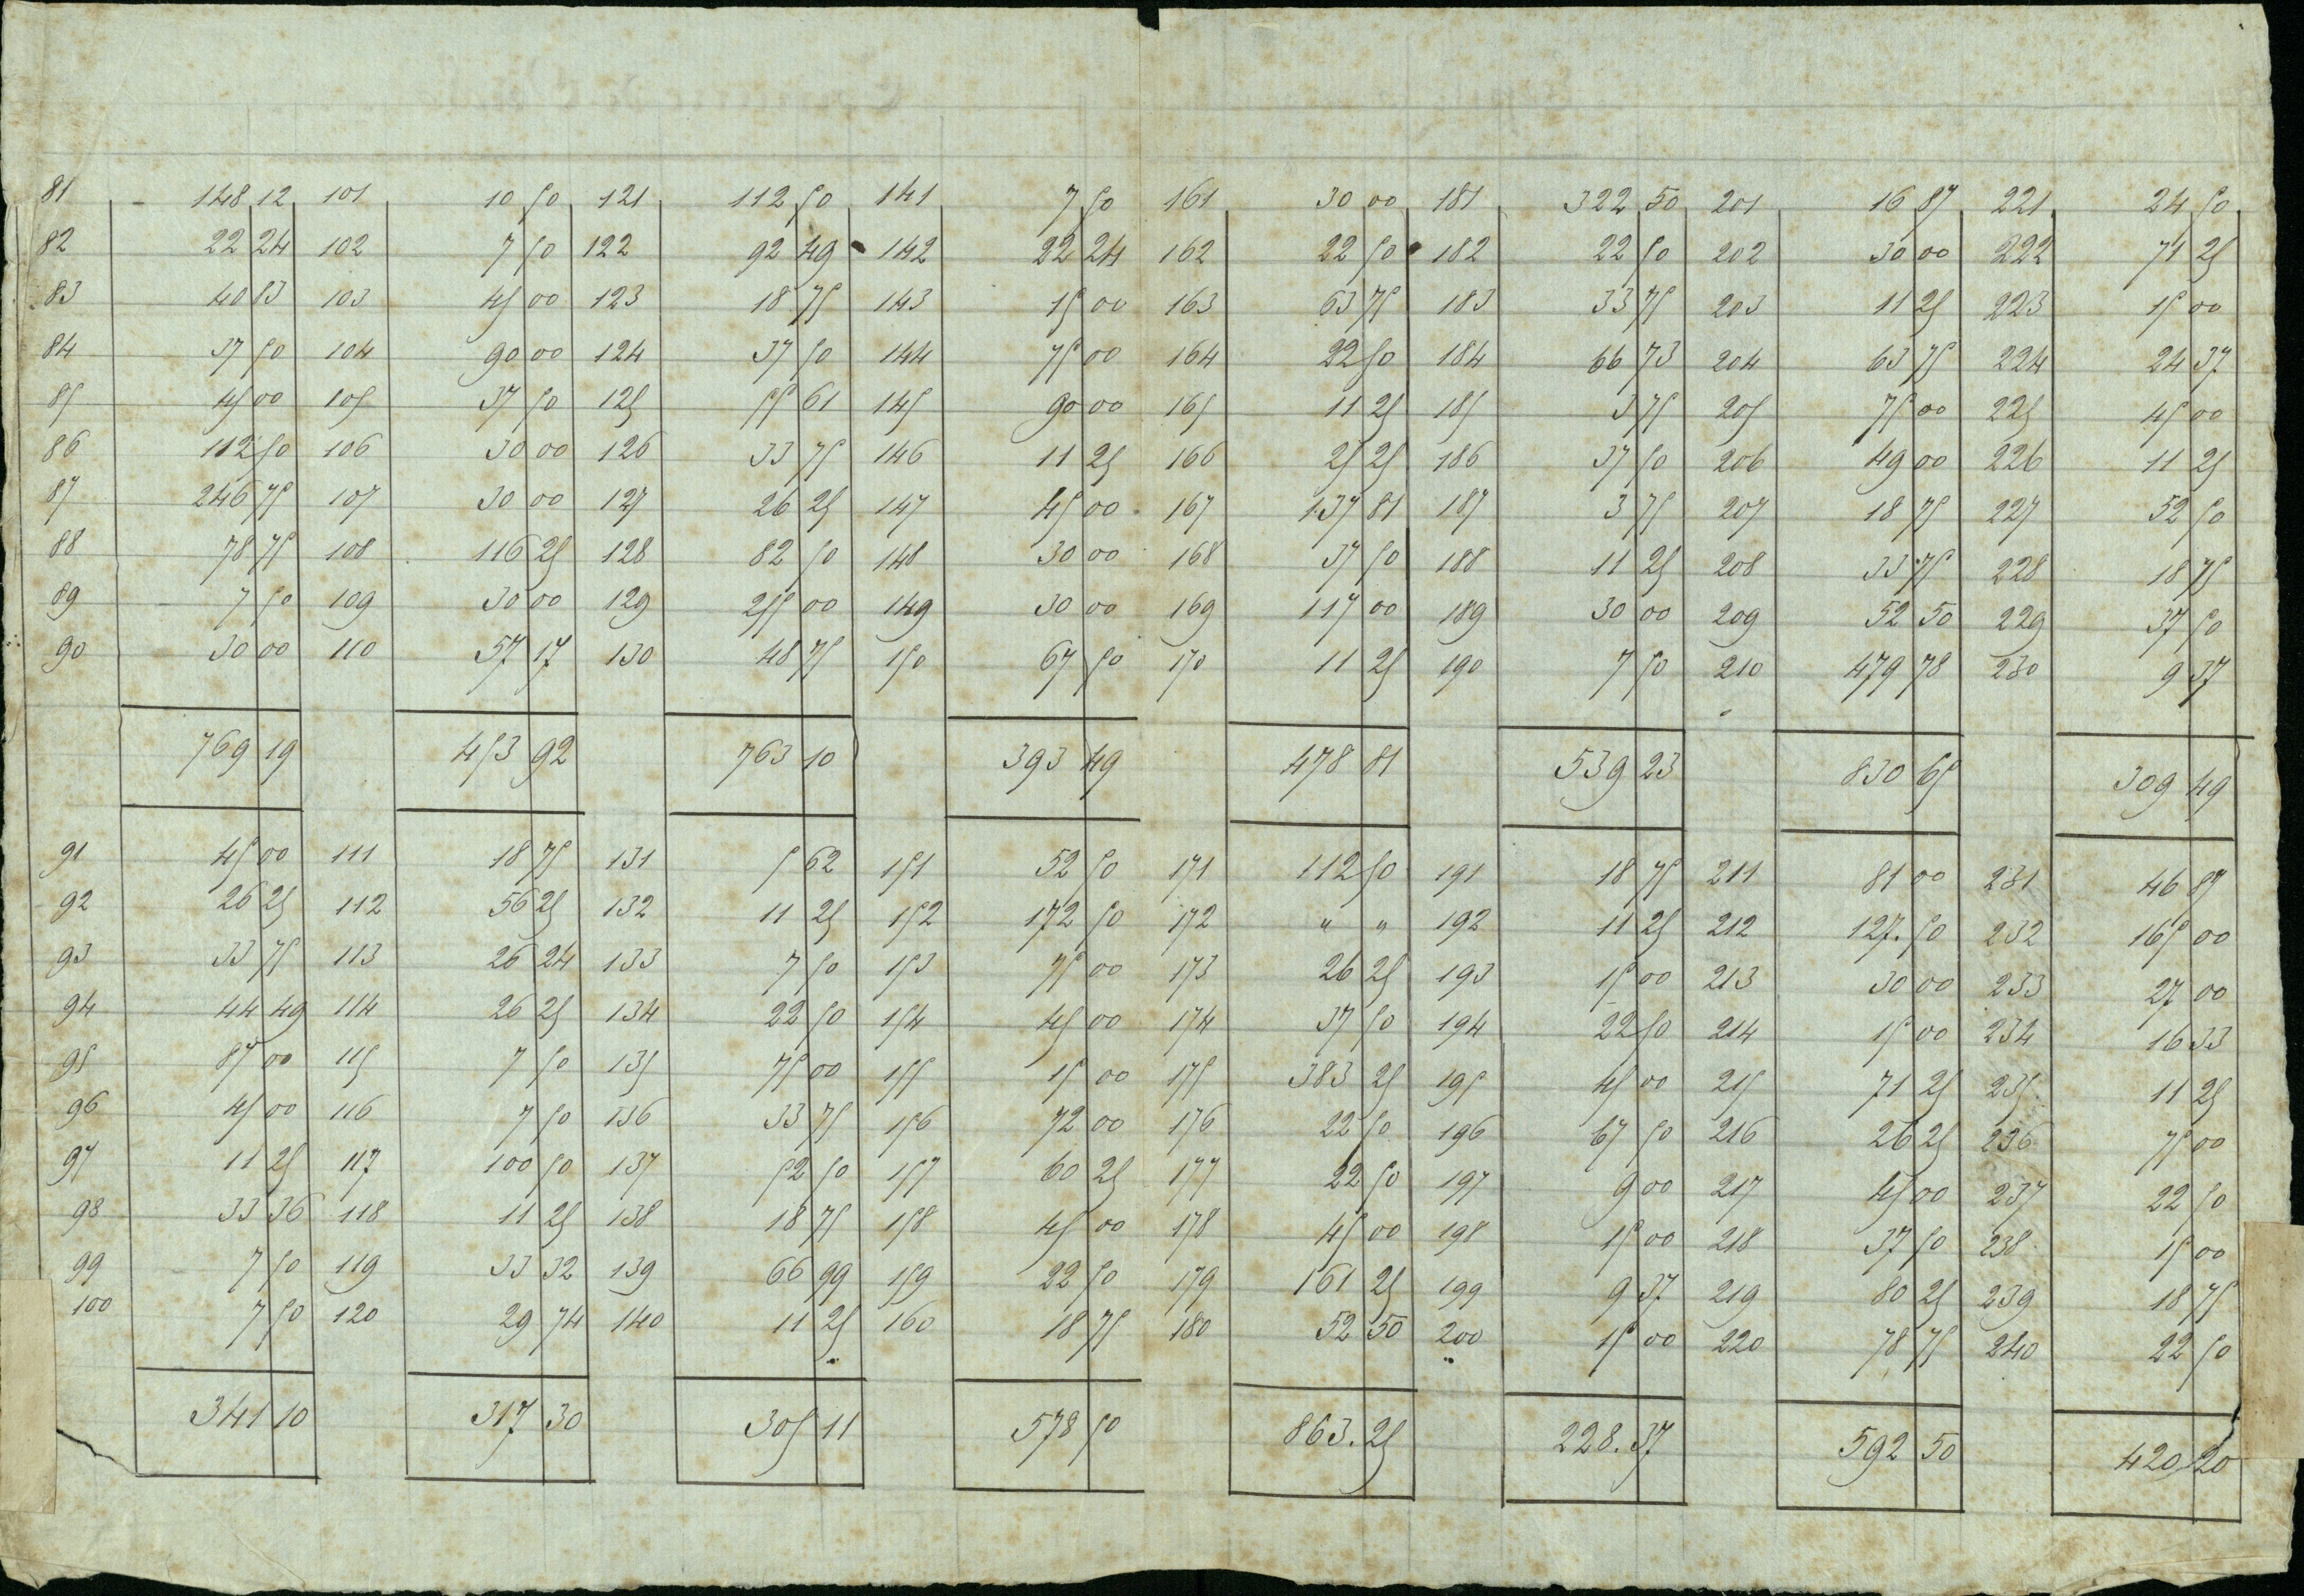 81 148 12 101 10 50 121 112 50 141 7 50 161 30 00 181 322 50 201 16 87 221 24 50
82 22 24 102 7 50 122 92 49 142 22 24 162 22 50 182 22 50 202 30 00 222 71 25
83 40 83 103 45 00 123 18 75 143 15 00 163 63 75 183 33 75 203 11 25 223 15 00
84 37 50 104 90 00 124 37 50 144 75 00 164 22 50 184 66 73 204 63 75 224 24 37
85 45 00 105 37 50 125 55 61 145 90 00 165 11 25 185 3 75 205 75 00 225 45 00
86 112 50 106 30 00 126 33 75 146 11 25 166 25 25 186 37 50 206 49 00 226 11 25
87 246 75 107 30 00 127 26 25 147 45 00 167 137 81 187 3 75 207 18 75 227 52 50
88 78 75 108 116 25 128 82 50 148 30 00 168 37 50 188 11 25 208 33 75 228 18 75
89 7 50 109 30 00 129 255 00 149 30 00 169 117 00 189 30 00 209 52 50 229 37 50
90 30 00 110 57 17 130 48 75 150 67 50 170 11 25 190 7 50 210 479 78 230 9 37
769 19 453 92 763 10 393 49 478 81 539 23 830 65 309 49
91 45 00 111 18 75 131 5 62 151 52 50 171 112 50 191 18 75 211 81 00 231 46 87
92 26 25 112 56 25 132 11 25 152 172 50 172 " " 192 11 25 212 127. 50 232 165 00
93 33 75 113 26 24 133 7 50 153 75 00 173 26 25 193 15 00 213 30 00 233 27 00
94 44 49 114 26 25 134 22 50 154 45 00 174 37 50 194 22 50 214 15 00 234 16 33
95 87 00 115 7 50 135 75 00 155 15 00 175 383 25 195 45 00 215 71 25 235 11 25
96 45 00 116 7 50 136 33 75 156 72 00 176 22 50 196 67 50 216 26 25 236 75 00
97 11 25 117 100 50 137 52 50 157 60 25 177 22 50 197 9 00 217 45 00 237 22 50
98 33 36 118 11 25 138 18 75 158 45 00 178 45 00 198 15 00 218 37 50 238 15 00
99 7 50 119 33 32 139 66 99 159 22 50 179 161 25 199 9 37 219 80 25 239 18 75
100 7 50 120 29 74 140 11 25 160 18 75 180 52 50 200 15 00 220 78 75 240 22 50
341 10 317 30 305 11 578 50 863. 25 228. 37 592 50 420 20